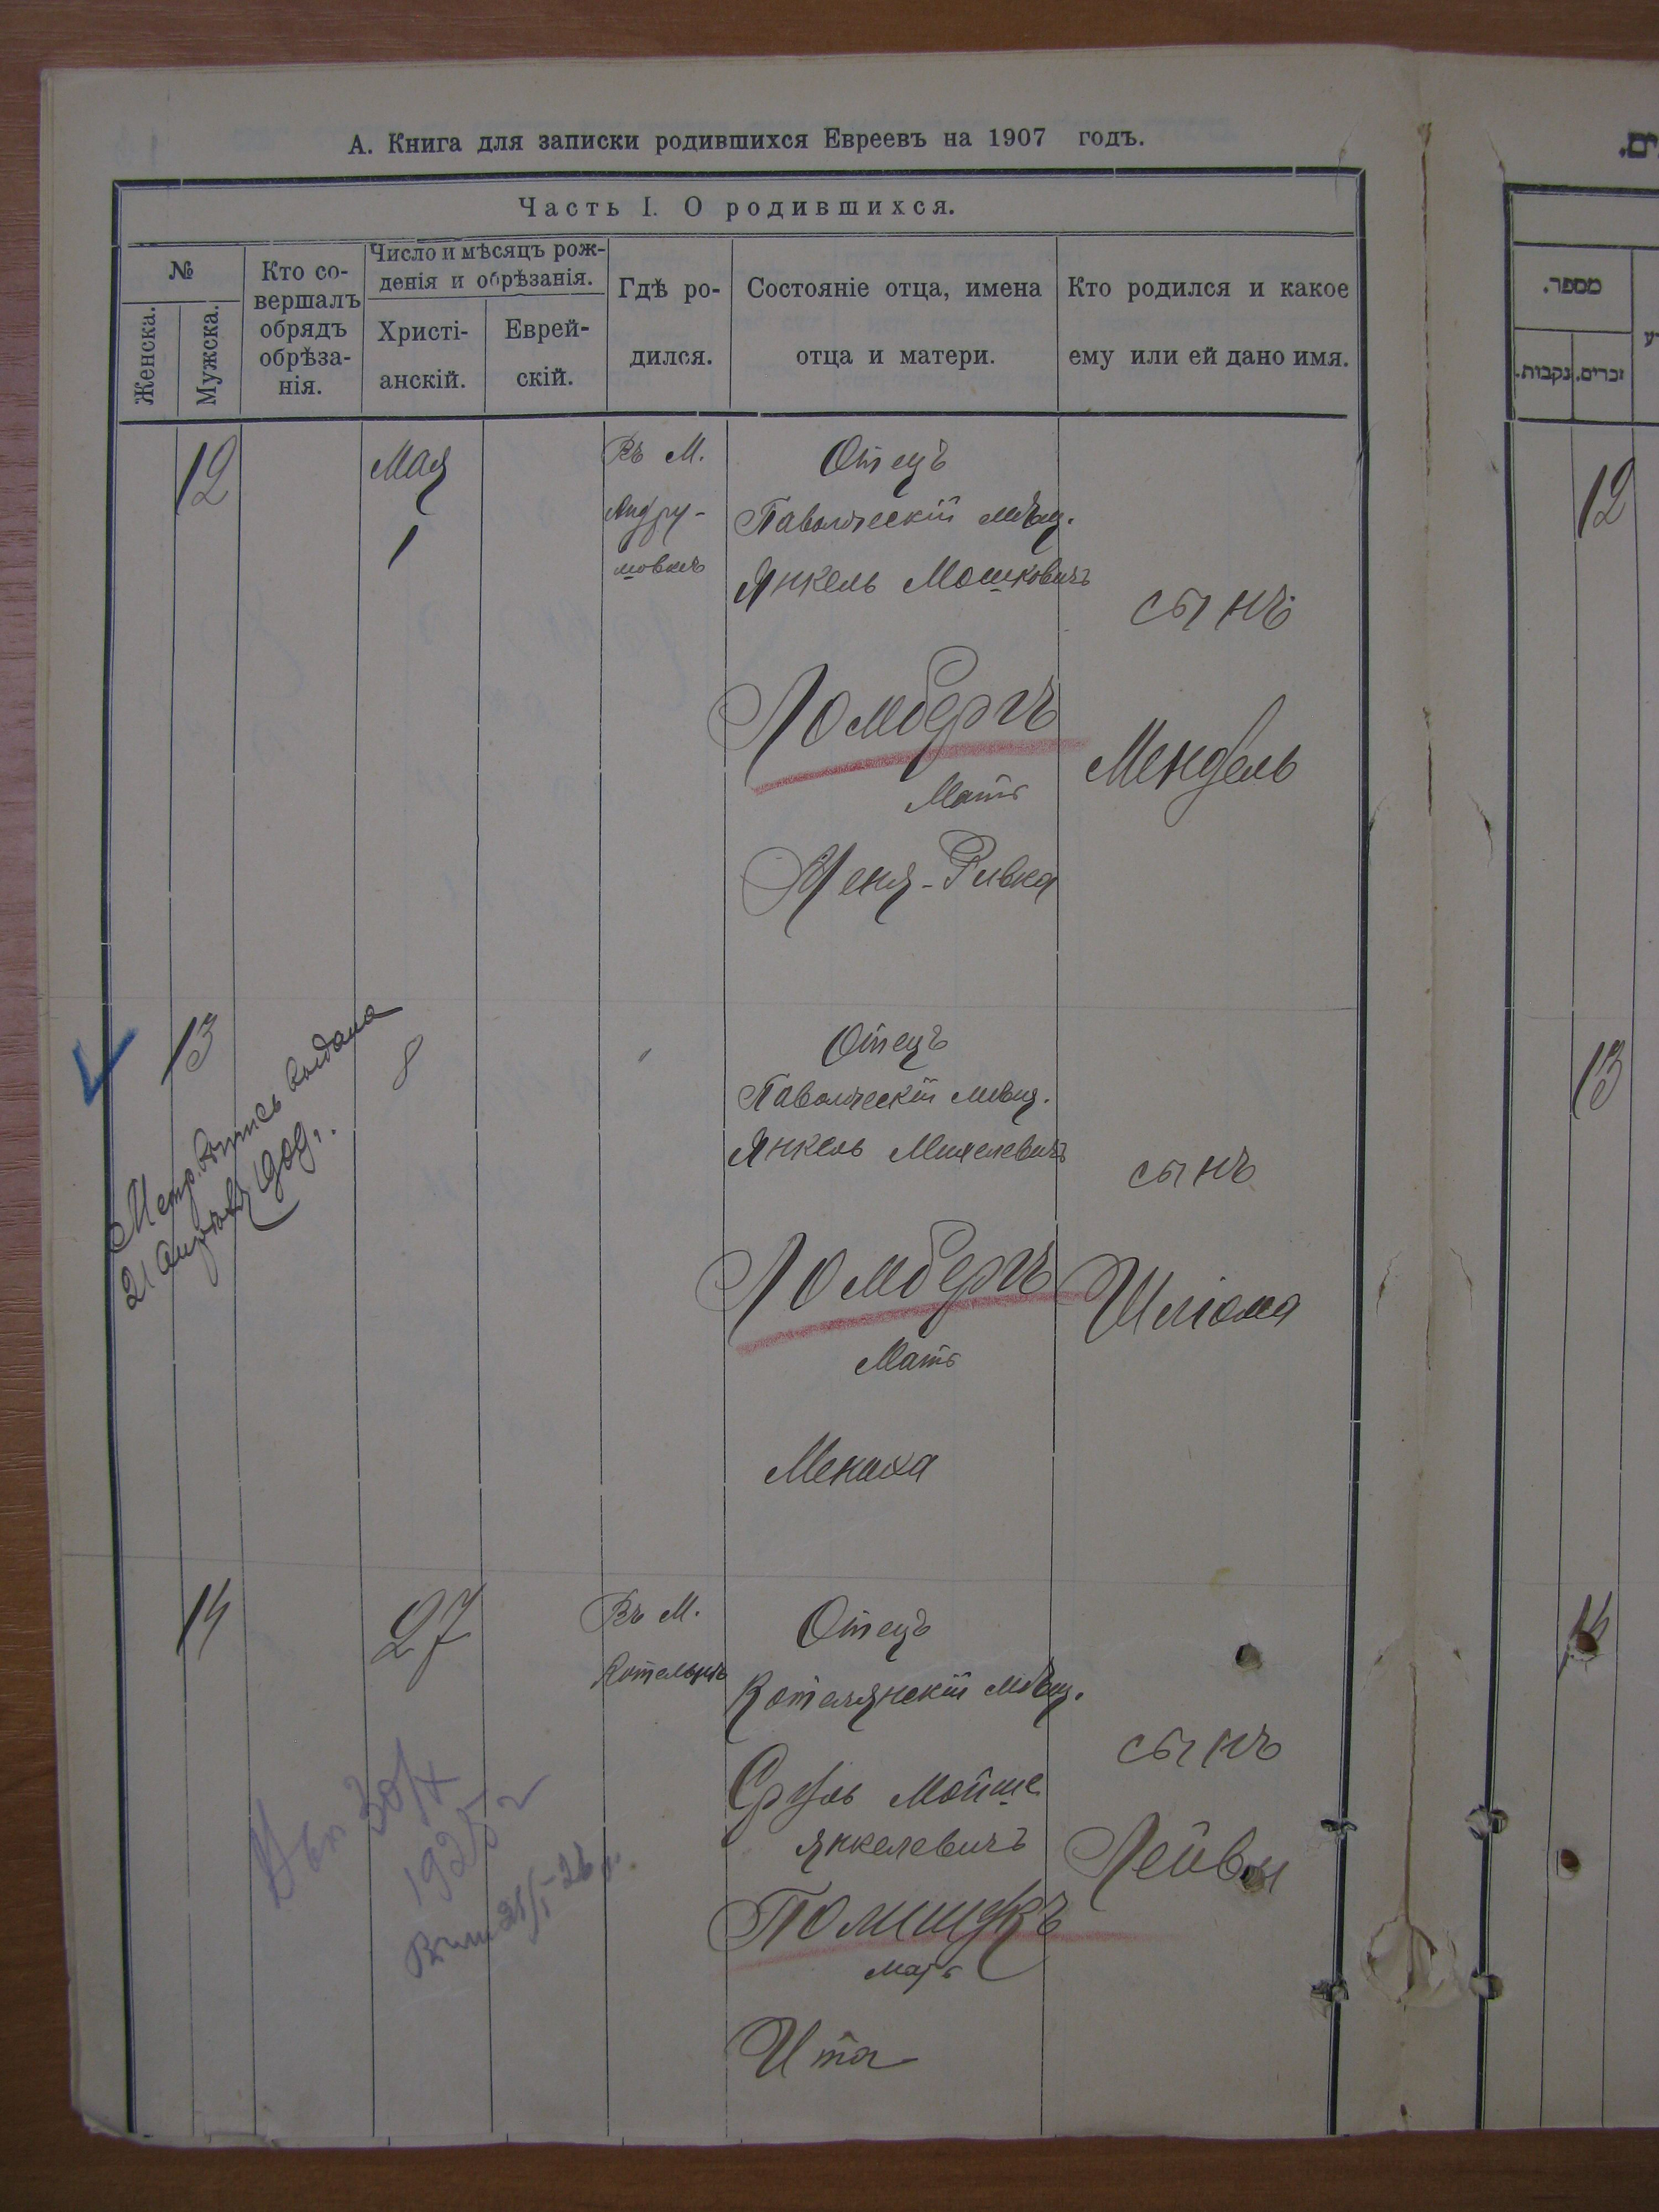 А. Книга для записки родившихся Евреевъ на 1907 годъ.
Часть I. О родившихся.
№
Женска.
Мужска.
Кто со-
вершалъ
обрядъ
обрѣза-
нія.
Число и мѣсяцъ рож-
денія и обрѣзанія.
Христі-
анскій.
Еврей-
скій.
Гдѣ ро-
дился.
Состояніе отца, имена
отца и матери.
Кто родился и какое
ему или ей дано имя.
12
Мая
1
Въ М.
Андру-
шовкѣ
Отецъ
Паволочскій мѣщ.
Янкель Мошковичъ
Ломбергъ
Мать
Ривка
сынъ
Мендель
13
8
Метр. выпись выдана
21 Апрѣля 1909 г.
Отецъ
Паволочскій мѣщ.
Янкель
Ломбергъ
Мать
Мениха
сынъ
Шліома
14
27
Въ М.
Котельнѣ
Отецъ
Котелянскій мѣщ.
Сруль Мойше
Янкелевичъ
Полищукъ
Мать
Ита
сынъ
Лейви
30/X
1925 г
מספר.
נקבות.
זכרים.
12
13
14